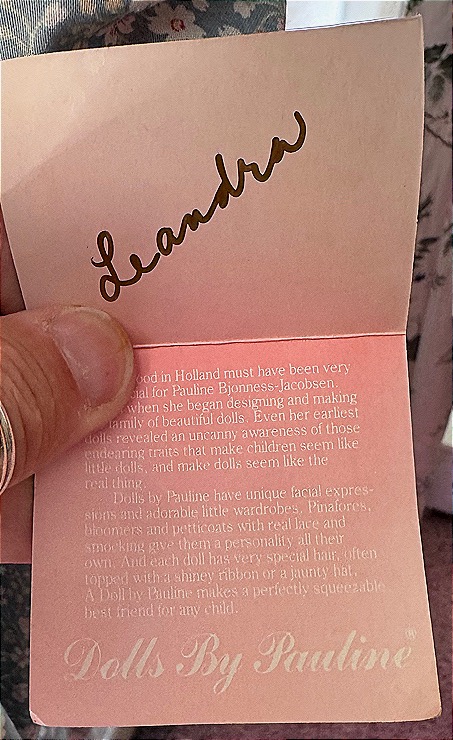 Leandra
ood in Holland must have been very
cial for Pauline Bjonness-Jacobsen.
when she began designing and making
family of beautiful dolls. Even her earliest
dolls revealed an uncanny awareness of those
endearing traits that make children seem like
little dolls, and make dolls seem like the
real thing.
Dolls by Pauline have unique facial expres-
sions and adorable little wardrobes. Pinafores,
bloomers and petticoats with real lace and
smocking give them a personality all their
own. And each doll has very special hair, often
topped with a shiney ribbon or a jaunty hat.
A Doll by Pauline makes a perfectly squeezable
best friend for any child.
Dolls By Pauline®